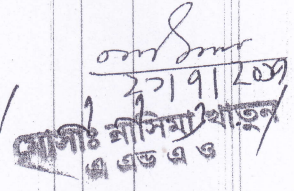 ২৭/৭/২০১৭
মোসাঃ নাসিমা খাতুন
এ এভ এ ও